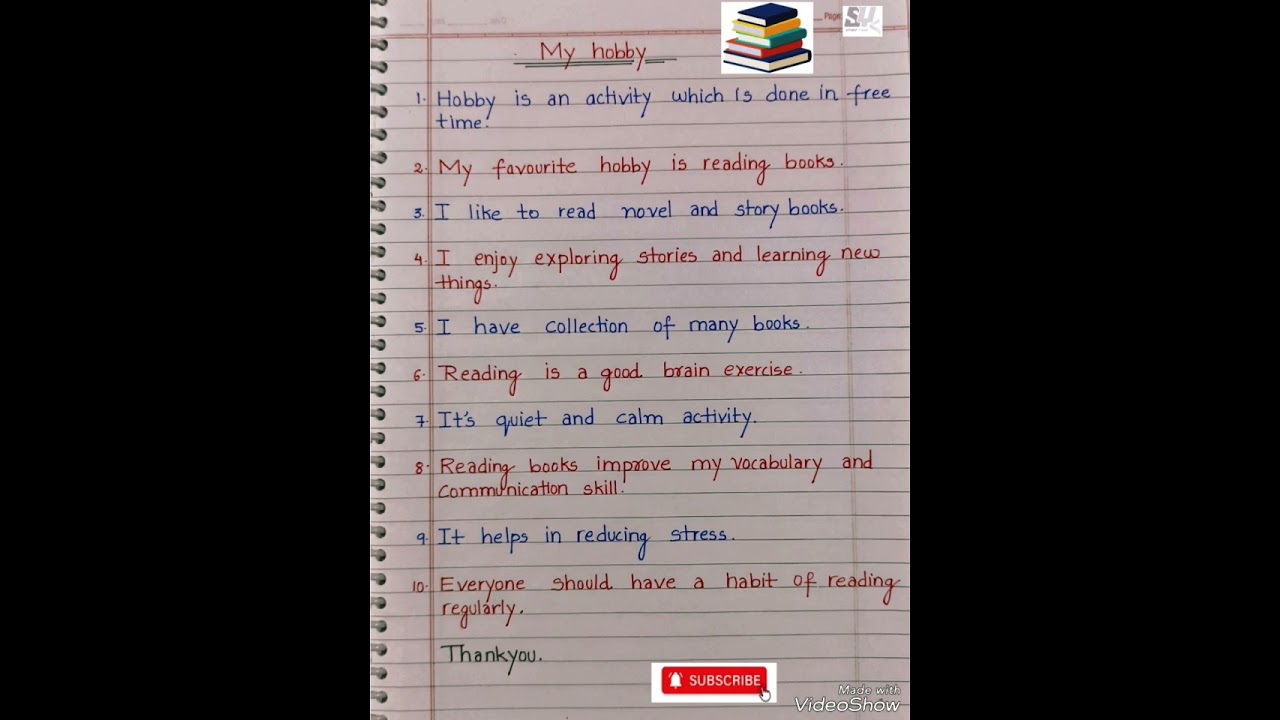 Page:
SY
My hobby
1. Hobby is an activity which is done in free
time.
2. My favourite hobby is reading books.
3. I like to read novel and story books.
4. I enjoy exploring stories and learning new
things.
5. I have collection of many books.
6. Reading is a good brain exercise.
7. It's quiet and calm activity.
8. Reading books improve my vocabulary and
communication skill.
9. It helps in reducing stress.
10. Everyone should have a habit of reading
regularly.
Thankyou.
SUBSCRIBE
Made with
VideoShow